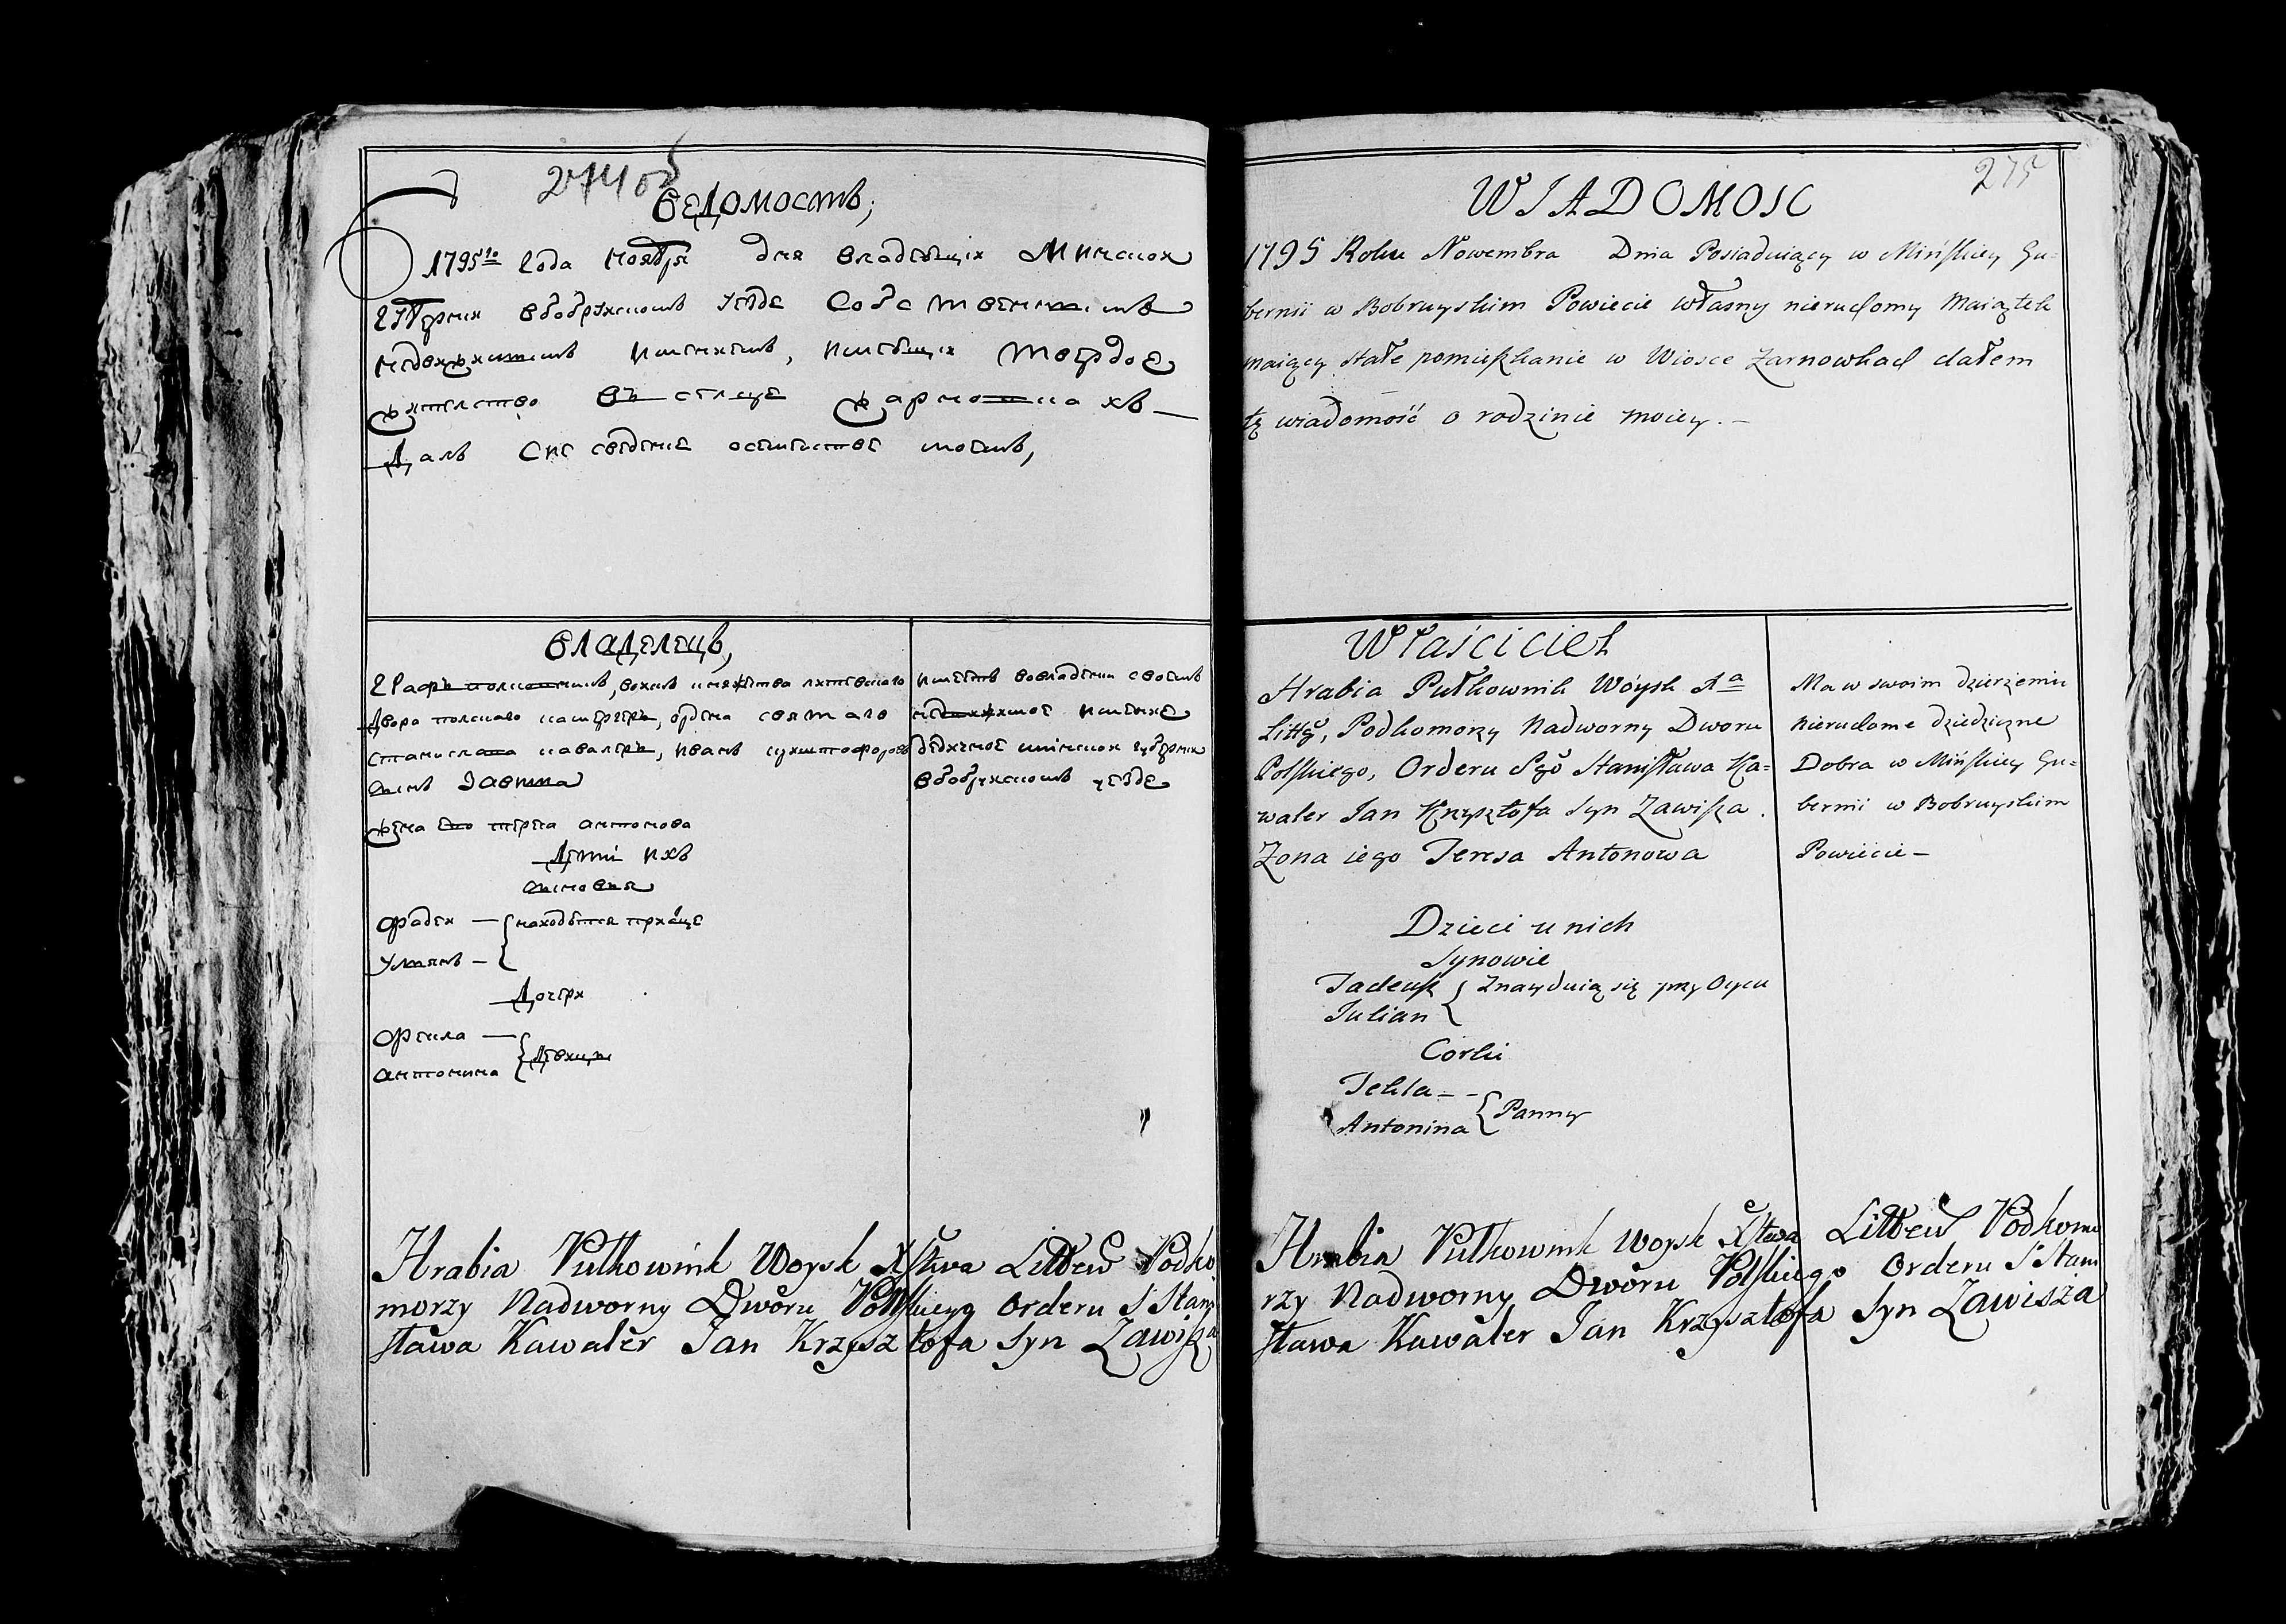 274 об
Ведомость,
1795го года ноября дня владеющiи Минской
губернии вбобруискомъ уезде собственнымъ
недвижимымъ имениемъ, имеющiи твердое
жителство въ селце жарновкахъ
Далъ сие сведение осемействе моемъ,
Владелецъ,
Графъ полковникъ, воискъ княжества литовскаго
Двора полскаго камергеръ, ордена святаго
станислава кавалеръ, иванъ криштофоровъ
сынъ Завиша
жена ево тереса антонова
Дети ихъ
сыновья
Фадеи — находятся приотце
Улиянъ —
Дочери
Фекла —
Девицы
антонина
имеетъ вовладении своемъ
недвижимое имение
дедичное минскои губернии
вбобруискомъ уезде
Hrabia Pułkownik Woysk Xstwa Littew Podko
morzy Nadworny Dworu Polskiego Orderu S Stani
sława Kawaler Jan Krzysztofa Syn Zawisza
275
WIADOMOSC
1795 Roku Nowembra Dnia Posiaduiący w Mińskiey Gu-
bernii w Bobruyskim Powiecie własny nieruchomy Maiątek
maiący stałe pomieszkanie w Wiosce Żarnowkach dałem
tę wiadomość o rodzinie moiey. —
Właściciel
Hrabia Pułkownik Wóysk Xa
Littgo, Podkomorzy Nadworny Dworu
Polskiego, Orderu Sgo Stanisława Ka-
waler Jan Krzysztofa Syn Zawisza.
Żona iego Teresa Antonowa
Dzieci u nich
Synowie
Tadeusz Znayduią się przy Oycu
Julian
Corki
Tekla — -
Panny
Antonina
Ma w swoim dzierżeniu
nieruchome dziedziczne
Dobra w Mińskiey Gu-
bernii w Bobruyskim
Powiecie —
Hrabia Pułkownik Woysk Xstwa Littew Podkomo
rzy Nadworny Dworu Polskiego Orderu S Stani
sława Kawaler Jan Krzysztofa Syn Zawisza